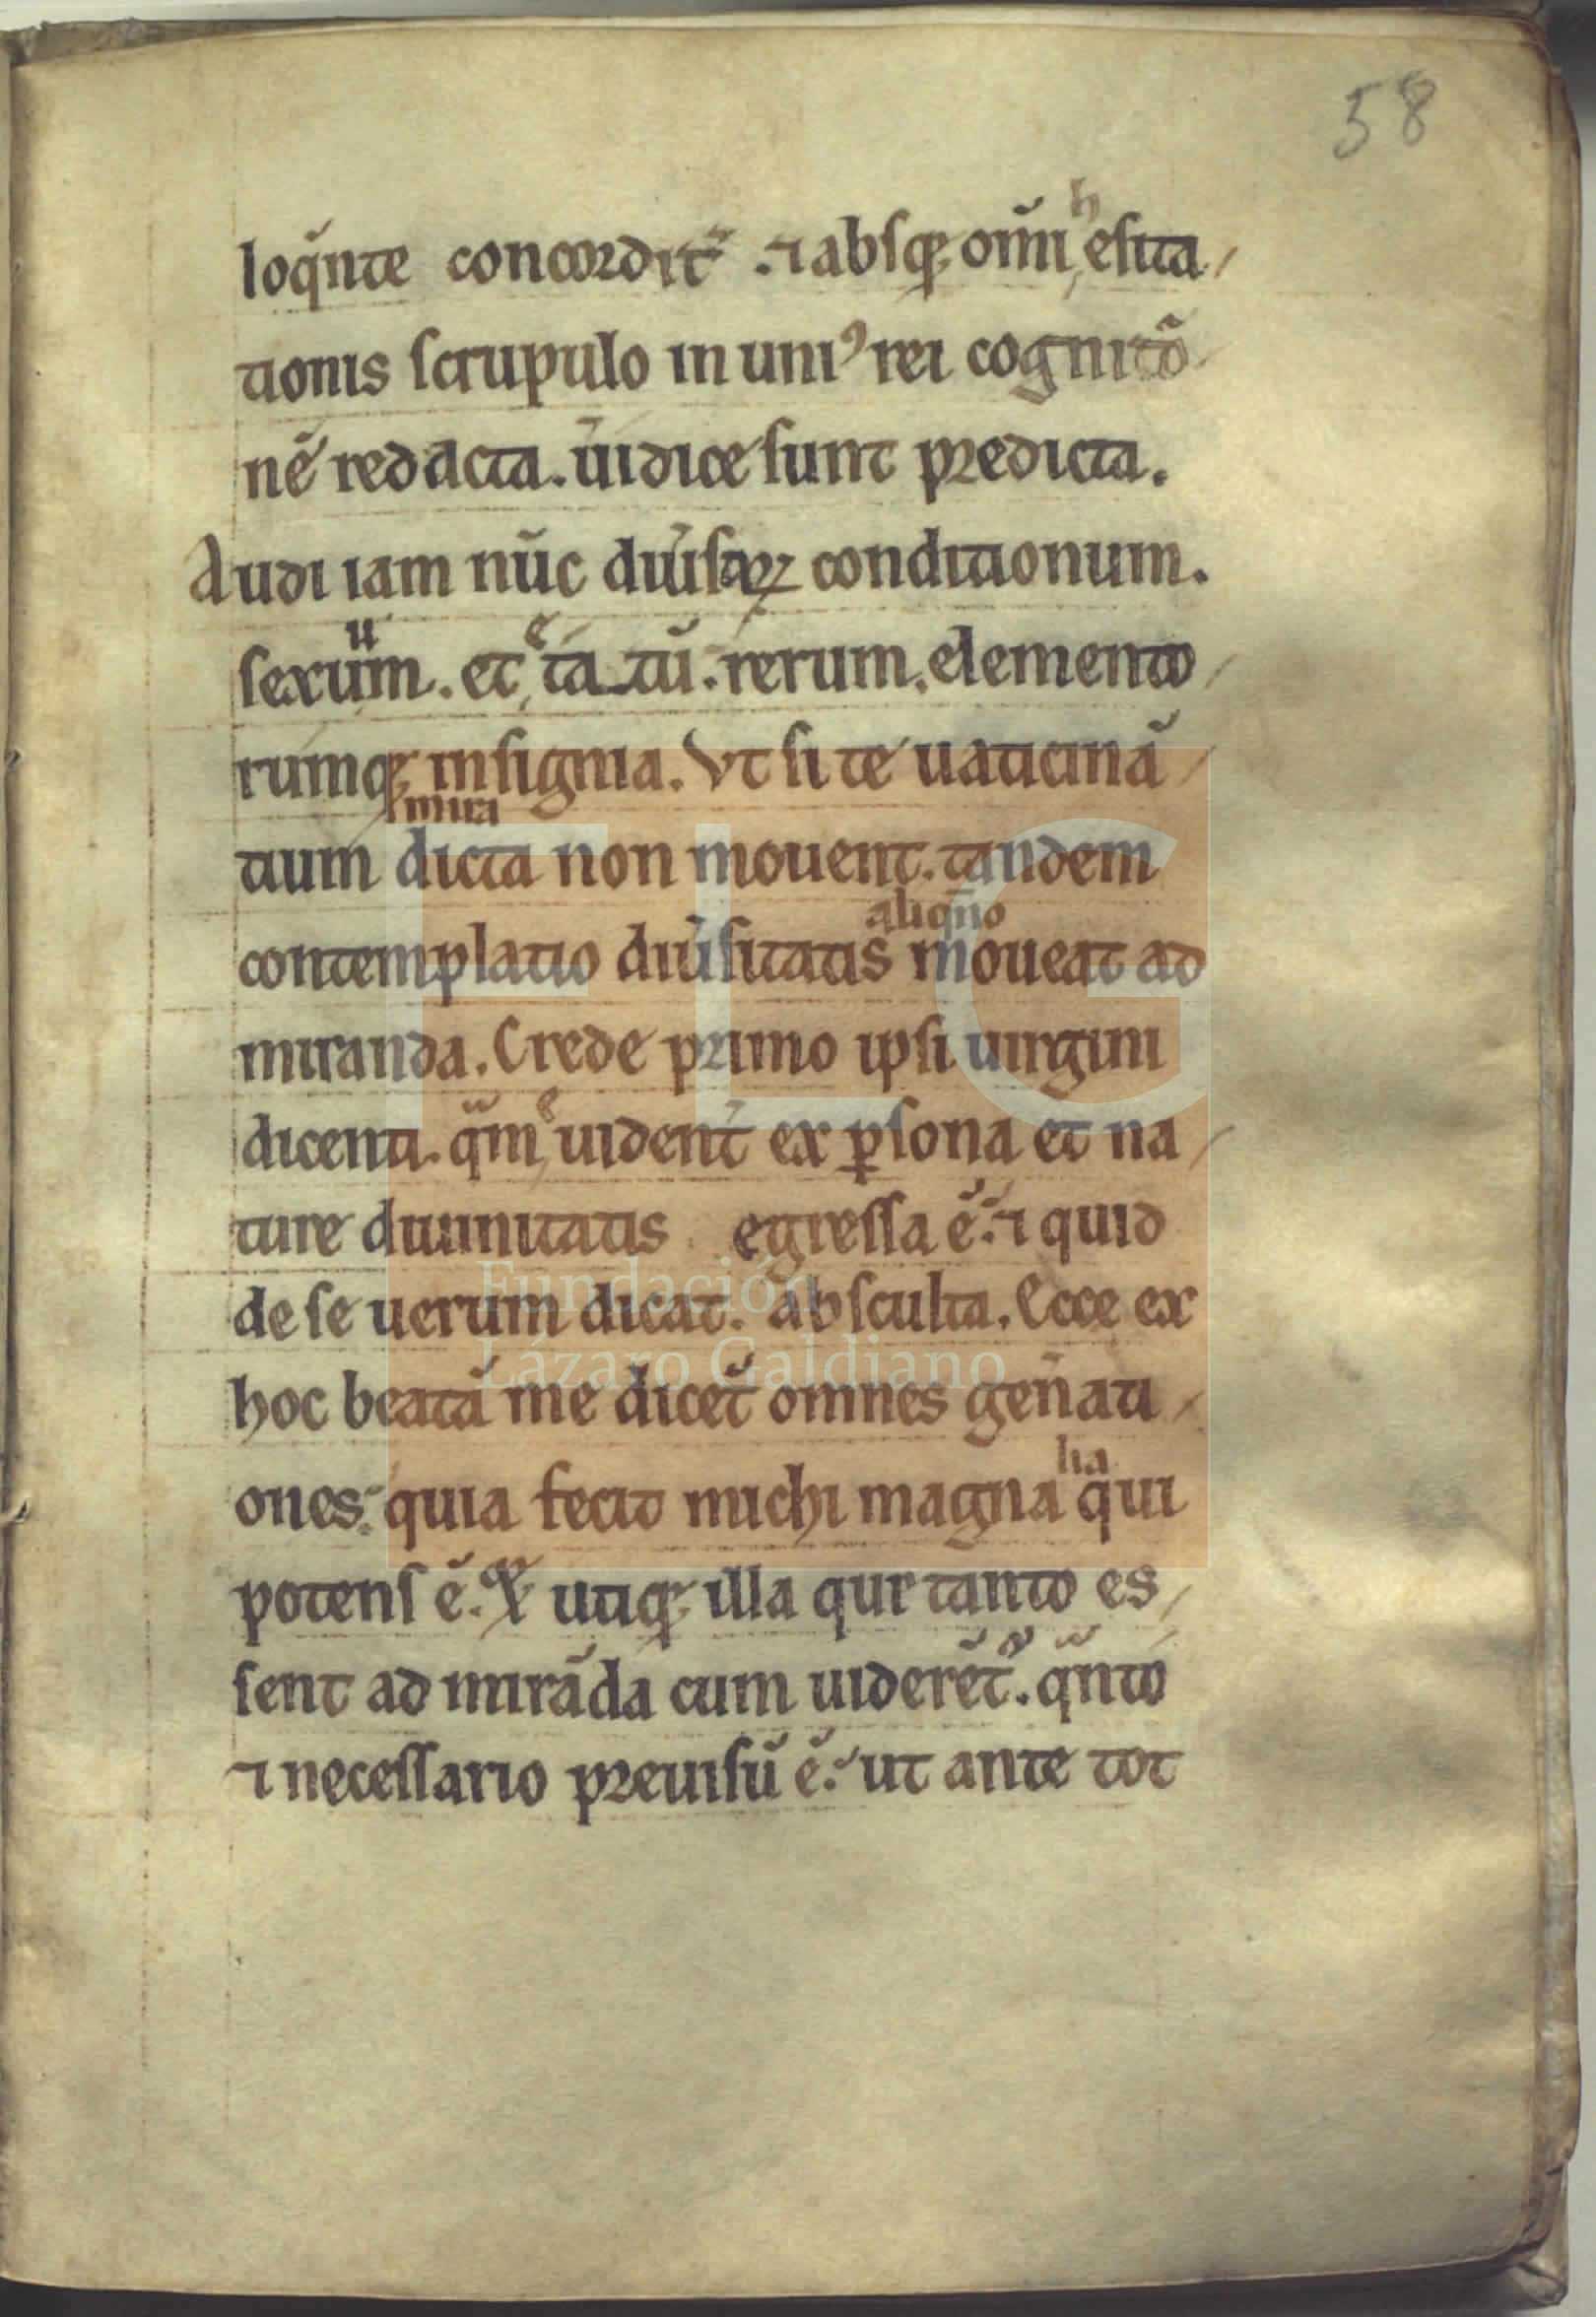 58
loq̃nte concordit̃ . ⁊ absq; om̃i hesita
tionis scrupulo in uniꝰ rei cognitõ
nẽ redacta. ũidice sunt predicta.
Audi iam nũc diũsaꝝ conditionum.
sexuũm. et eta tũ. rerum. elemento
rumq; insignia. Vt si te uaticinã
tium mira dicta non mouent. tandem
contemplatio diũsitatis aliq̃no moueat ad
miranda. Crede primo ipsi uirgini
dicenti. qm̃ euident̃ ex ꝑsona et na
ture diuinitatis egressa ẽ. ⁊ quid
de se uerum dicat. absculta. Ecce ex
hoc beatã me dicet̃ omnes geñati
ones. quia fecit michi magnalia qui
potens ẽ. utiq; illa que tanto es
sent ad mirãda cum uiderẽt. q̃nto
⁊ necessario preuisũ ẽ. ut ante tot
FLG
Fundación
Lázaro Galdiano